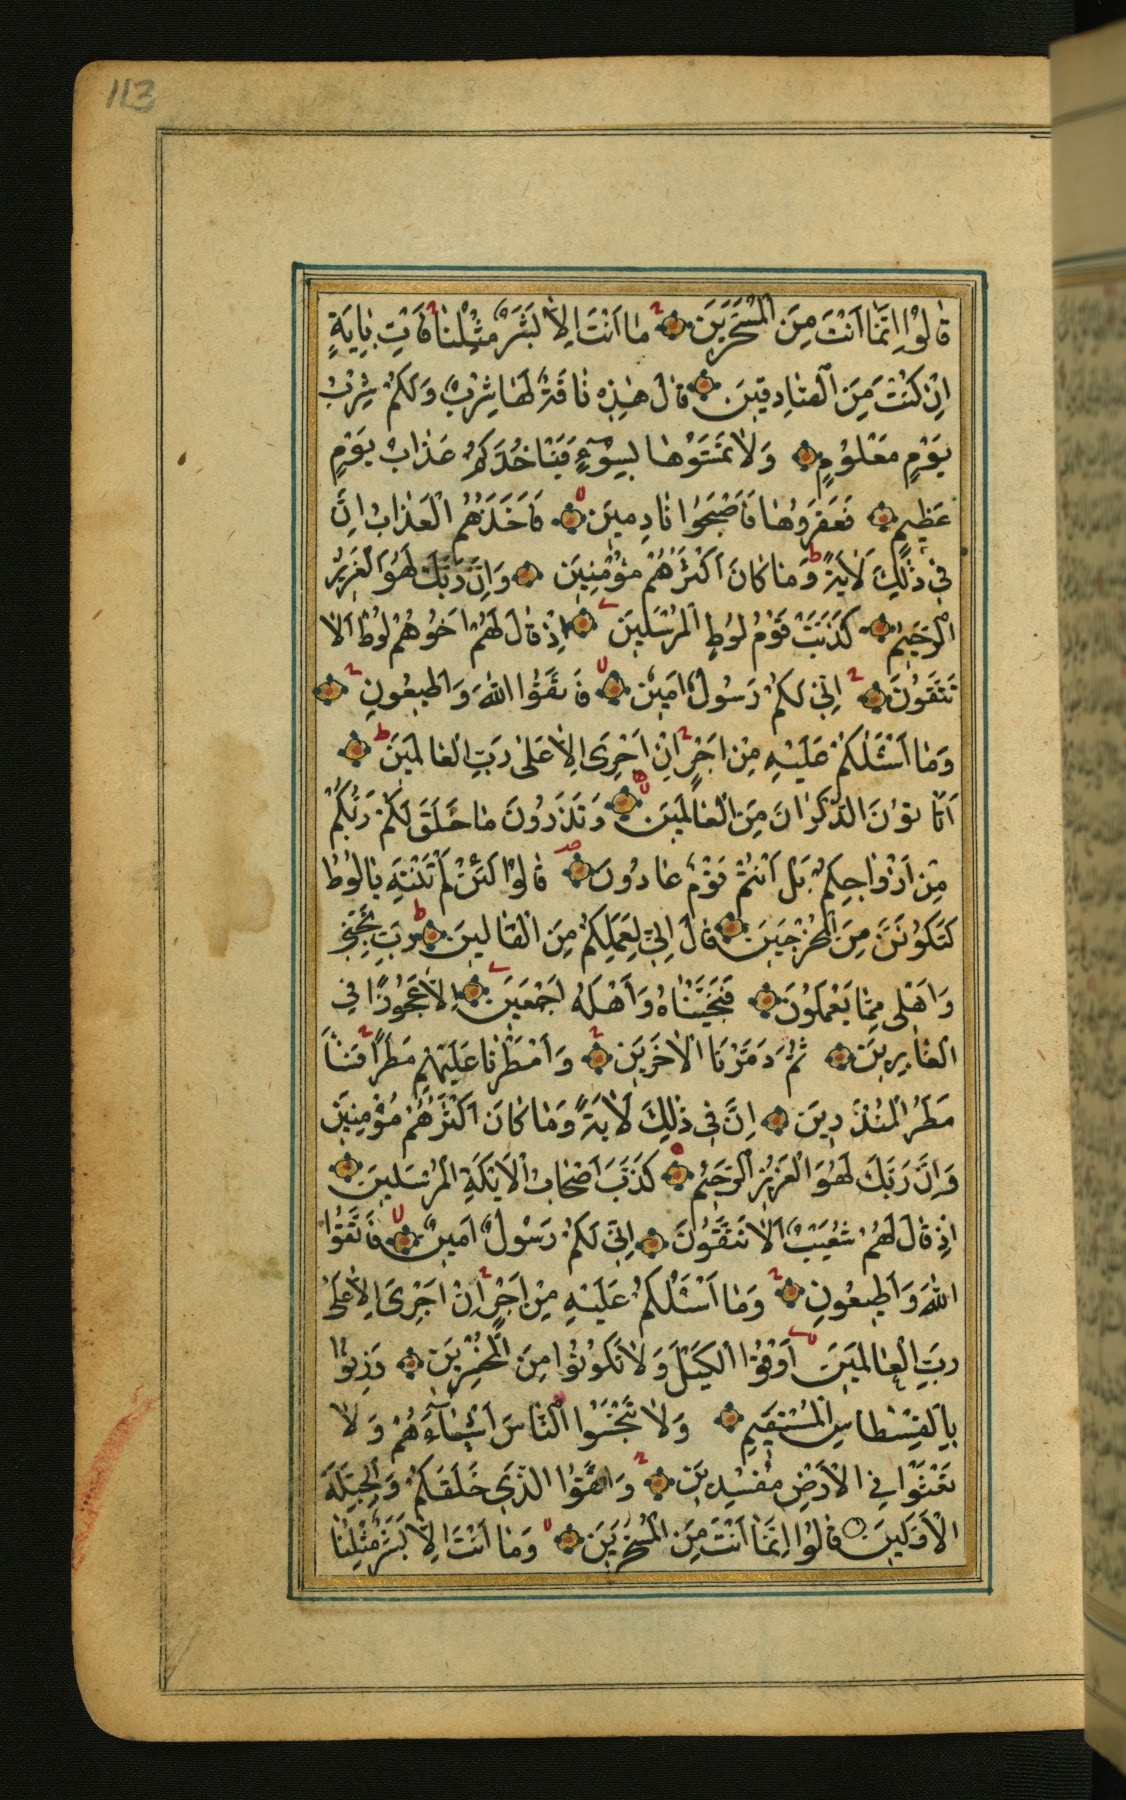 113
قٰالُوْا اِنَّمٰا اَنْتَ مِنَ الْمُسَحَّرِیَنَ مٰا اَنْتَ اِلاّٰ بَشَرٌ مِثْلُنٰا فَأْتِ بِاٰیَةٍ
اِنْ كُنْتَ مِنَ الصّٰادِقِیَنَ قٰالَ هٰذِهِ نٰاقَةٌ لَهٰا شِرْبٌ وَلَكُمْ شِرْبُ
یَوْمٍ مَعْلُوْمٍ وَلاٰ تَمَسُّوْهٰا بِسُوْٓءٍ فَیَأْخُذَكُمْ عَذٰابُ یَوْمٍ
عَظِیمٍ فَعَقَرُوهٰا فَأَصْبَحُوا نٰادِمِینَ فَاَخَذَهُمُ الْعَذٰابُ اِنَّ
فِی ذٰلِكَ لَاٰیَةً وَمٰا كٰانَ اَكْثَرُهُمْ مُؤْمِنِینَ وَاِنَّ رَبَّكَ لَهُوَ الْعَزِیْزُ
الرَّحِیْمُ كَذَّبَتْ قَوْمُ لُوطٍ الْمُرْسَلِینَ اِذْ قٰالَ لَهُمْ اَخُوهُمْ لُوْطٌ اَلاٰ
تَتَّقُوْنَ اِنِّی لَكُمْ رَسُولٌ اَمِیْنٌ فَاتَّقُوا اللّٰهَ وَاَطِیعُونِ
وَمٰا اَسْئَلُكُمْ عَلَیْهِ مِنْ اَجْرٍ اِنْ اَجْرِیَ اِلاّٰ عَلٰی رَبِّ الْعٰالَمِیَنَ
اَتَأْتُوْنَ الذُّكْرٰانَ مِنَ الْعٰالَمِینَ وَتَذَرُونَ مٰا خَلَقَ لَكُمْ رَبُّكُمْ
مِنْ اَزْوٰاجِكُمْ بَلْ اَنْتُمْ قَوْمٌ عٰادُونَ قٰالُوْا لَئِنْ لَمْ تَنْتَهِ یٰا لُوْطُ
لَتَكُوْنَنَّ مِنَ الْمُخْرَجِیَنَ قٰالَ اِنِّی لِعَمَلِكُمْ مِنَ الْقٰالِینَ رَبِّ نَجِّنِی
وَاَهْلِی مِمّٰا یَعْمَلُوْنَ فَنَجَّیْنٰاهُ وَاَهْلَهُ اَجْمَعِیَنَ اِلاّٰ عَجُوْزًا فِی
الْغٰابِرِیَنَ ثُمَّ دَمَّرْنَا الْاٰخَرِیَن وَاَمْطَرْنٰا عَلَیْهِمْ مَطَرًا فَسٰٓاءَ
مَطَرُ الْمُنْذَرِینَ اِنَّ فِی ذٰلِكَ لَاٰیَةً وَمٰا كٰانَ اَكْثَرُهُمْ مُؤْمِنِیَن
وَاِنَّ رَبَّكَ لَهُوَ الْعَزِیْزُ الرَّحِیْمُ كَذَّبَ اَصْحٰابُ الْاَیْكَةِ الْمُرْسَلِیَنَ
اِذْ قٰالَ لَهُمْ شُعَیْبٌ اَلاٰ تَتَّقُوْنَ اِنِّی لَكُمْ رَسُوْلٌ اَمِیْنٌ فَاتَّقُوا
اللّٰهَ وَاَطِیعُونِ وَمٰا اَسْئَلُكُمْ عَلَیْهِ مِنْ اَجْرٍ اِنْ اَجْرِیَ اِلاّٰ عَلٰی
رَبِّ الْعٰالَمِیَنَ اَوْفُوْا الْكَیْلَ وَلاٰ تَكُوْنُوْا مِنَ الْمُخْسِرِیَن وَزِنُوْا
بِالْقِسْطٰاسِ الْمُسْتَقِیَمِ وَلاٰ تَبْخَسُوا النّٰاسَ اَشْیٰٓاءَهُمْ وَلاٰ
تَعْثَوْا فِی الْاَرْضِ مُفْسِدِیَن وَاتَّقُوْا الَّذِی خَلَقَكُمْ وَالْجِبِلَّةَ
الْاَوَّلِیَن قٰالُوْا اِنَّمٰا اَنْتَ مِنَ الْمُسَحَّرِیَنَ وَمٰا اَنْتَ اِلاّٰ بَشَرٌ مِثْلُنٰا